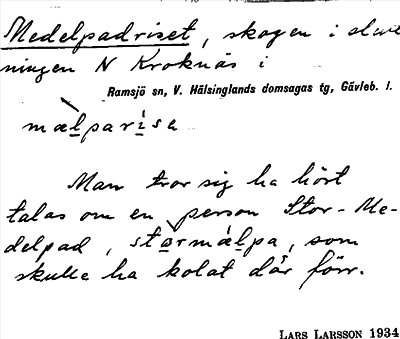 Medelpadriset, skogen i slutt-
ningen N Kroknäs i
Ramsjö sn, V. Hälsinglands domsagas tg, Gävleb. l.
mælparisa
Man tror sig ha hört
talas om en person Stor-Me-
delpad, stormælpa, som
skulle ha kolat där förr.
LARS LARSSON 1934